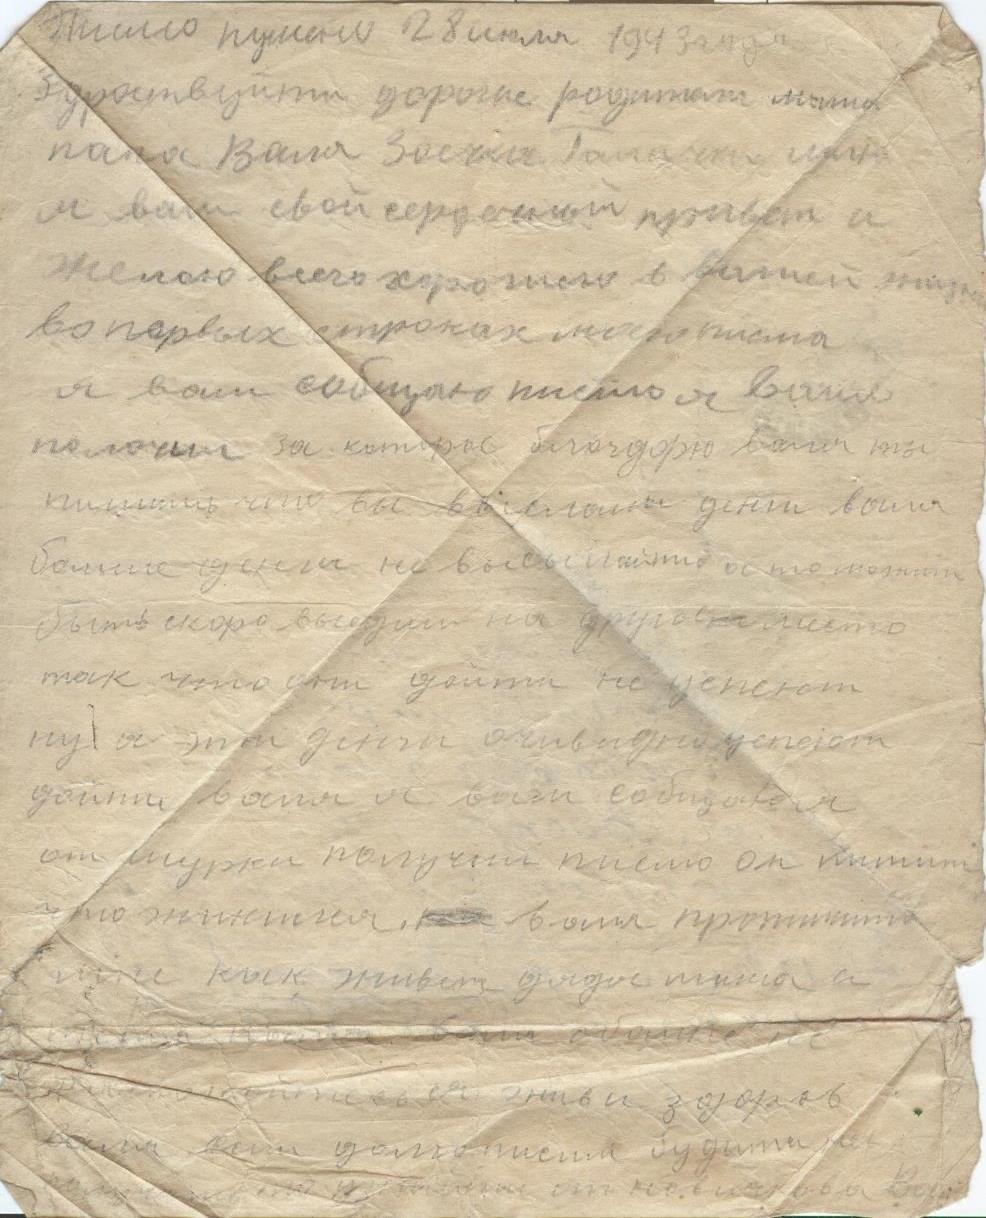 Писмо пушено 28 июля 1943 года
Здраствуйти дорогие родители мама
папа Валя Зоечка Галачка шлю
я вам свой сердечный привет и
желаю всего хорошего в вашей жизни
во первых строках моего писма
я вам собщаю писмо я Валя
получил за которое благодорю валя ты
пишишь что вы выслали денги валя
больше денги не высылайти а то можит
быть скоро выедим на другое место
так что они дойти не успеют
ну а эти денги очивидно успеют
дойти валя я вам собщаю я
от шурки получил писмо он пишит
что жинился валя пропишите
мне как живет дядя миша и
вам обомне не
я жив и здоров
валя если долго писем будити не
от новичкова В